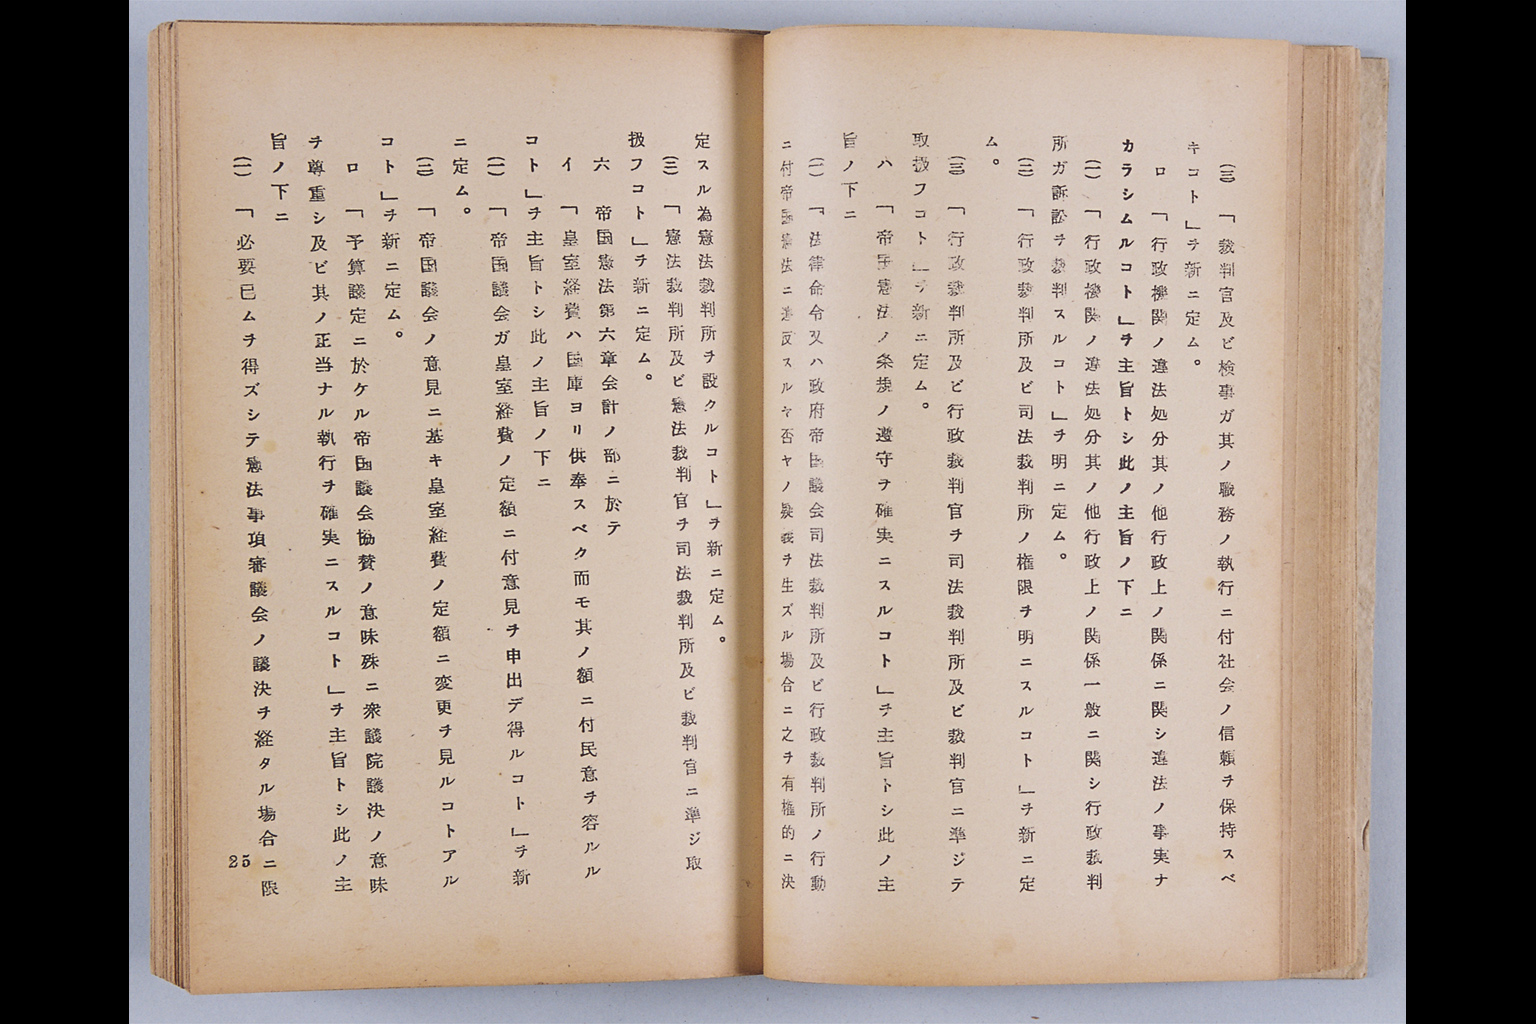 ㈢　「裁判官及ビ検事ガ其ノ職務ノ執行ニ付社会ノ信頼ヲ保持スベ
キコト」ヲ新ニ定ム。
ロ　「行政機関ノ違法処分其ノ他行政上ノ関係ニ関シ違法ノ事実ナ
カラシムルコト」ヲ主旨トシ此ノ主旨ノ下ニ
㈠　「行政機関ノ違法処分其ノ他行政上ノ関係一般ニ関シ行政裁判
所ガ訴訟ヲ裁判スルコト」ヲ明ニ定ム。
㈡　「行政裁判所及ビ司法裁判所ノ権限ヲ明ニスルコト」ヲ新ニ定
ム。
㈢　「行政裁判所及ビ行政裁判官ヲ司法裁判所及ビ裁判官ニ準ジテ
取扱フコト」ヲ新ニ定ム。
ハ　「帝国憲法ノ条規ノ遵守ヲ確実ニスルコト」ヲ主旨トシ此ノ主
旨ノ下ニ
㈠　「法律命令又ハ政府帝国議会司法裁判所及ビ行政裁判所ノ行動
ニ付帝国憲法ニ違反スルヤ否ヤノ疑義ヲ生ズル場合ニ之ヲ有権的ニ決
定スル為憲法裁判所ヲ設クルコト」ヲ新ニ定ム。
㈢　「憲法裁判所及ビ憲法裁判官ヲ司法裁判所及ビ裁判官ニ準ジ取
扱フコト」ヲ新ニ定ム。
六　帝国憲法第六章会計ノ部ニ於テ
イ　「皇室経費ハ国庫ヨリ供奉スベク而モ其ノ額ニ付民意ヲ容ルル
コト」ヲ主旨トシ此ノ主旨ノ下ニ
㈠　「帝国議会ガ皇室経費ノ定額ニ付意見ヲ申出デ得ルコト」ヲ新
ニ定ム。
㈡　「帝国議会ノ意見ニ基キ皇室経費ノ定額ニ変更ヲ見ルコトアル
コト」ヲ新ニ定ム。
ロ　「予算議定ニ於ケル帝国議会協賛ノ意味殊ニ衆議院議決ノ意味
ヲ尊重シ及ビ其ノ正当ナル執行ヲ確実ニスルコト」ヲ主旨トシ此ノ主
旨ノ下ニ
㈠　「必要已ムヲ得ズシテ憲法事項審議会ノ議決ヲ経タル場合ニ限
25